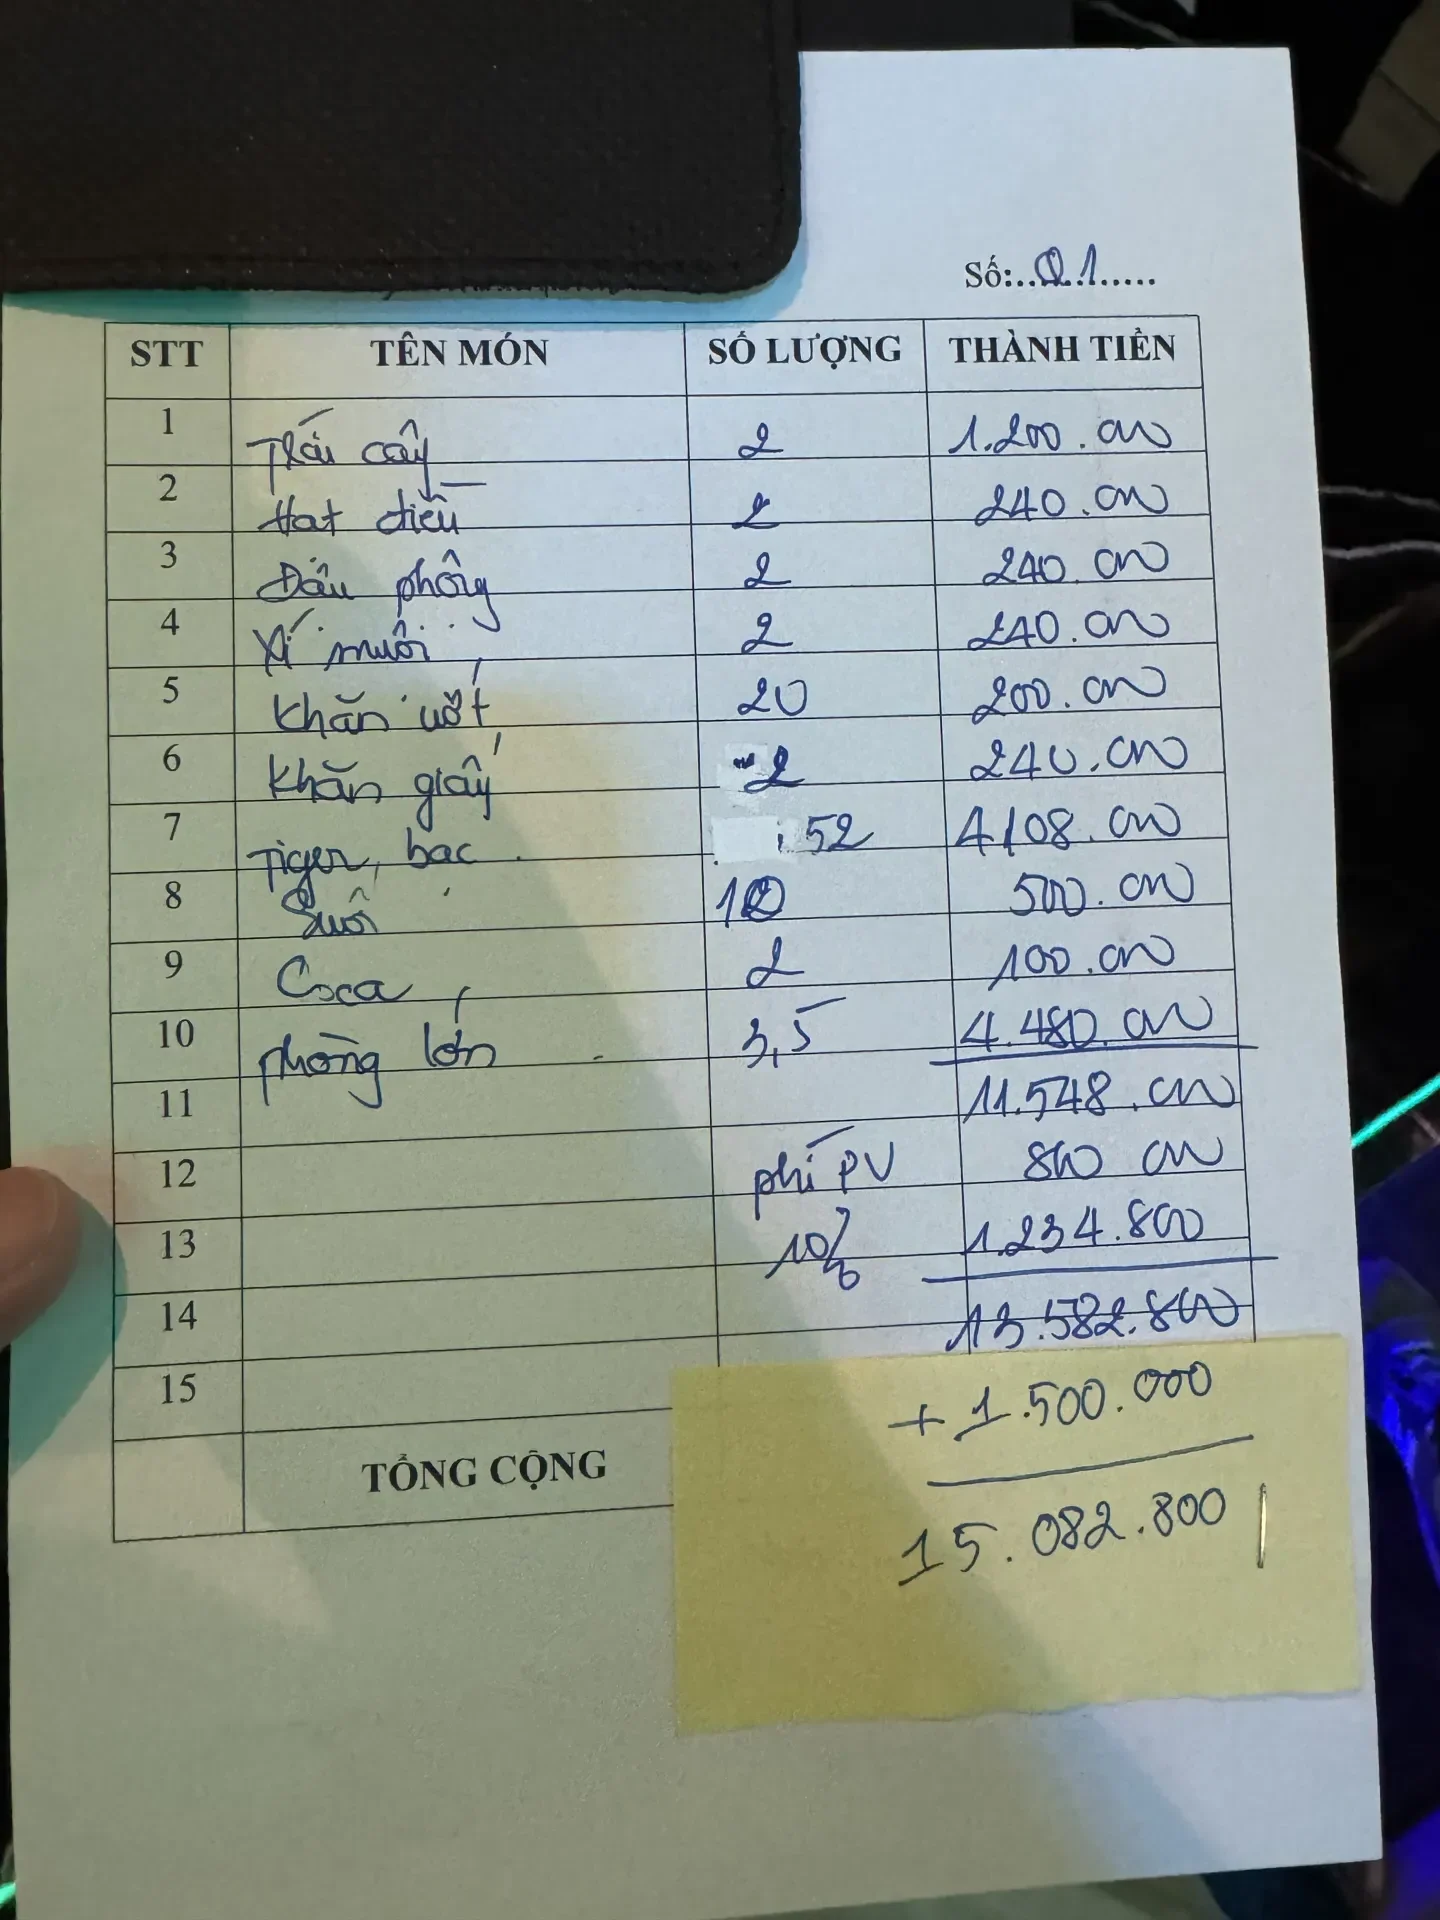 Số:..01.....
STT TÊN MÓN SỐ LƯỢNG THÀNH TIỀN
1 Trái cây 2 1.200.000
2 Hạt điều 2 240.000
3 Đậu phộng 2 240.000
4 Xí muội 2 240.000
5 Khăn ướt 20 200.000
6 Khăn giấy 2 240.000
7 Tiger bạc 52 4108.000
8 Suối 10 500.000
9 Coca 2 100.000
10 phòng lớn 3,5 4.480.000
11 11.548.000
12 phí PV 800 000
13 10% 1.234.800
14 13.582.800
15 + 1.500.000
TỔNG CỘNG 15.082.800